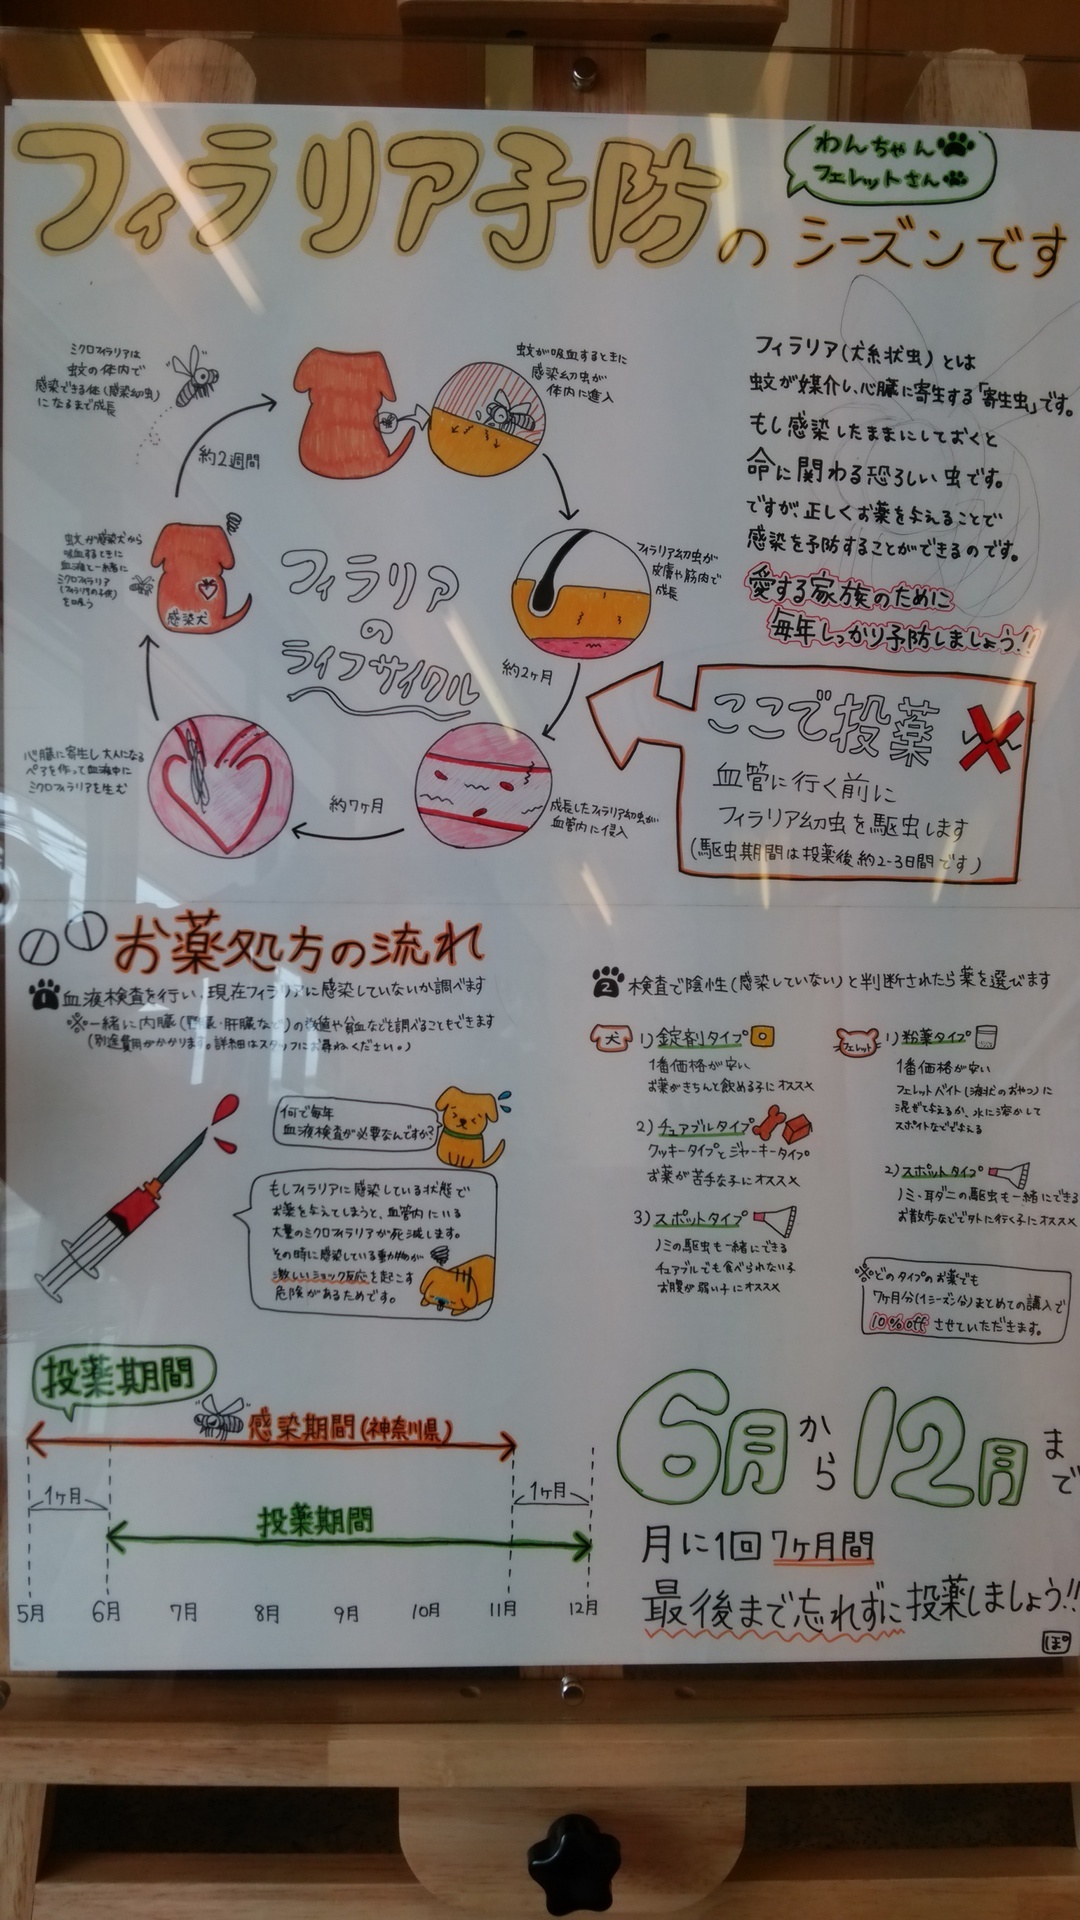 フィラリア予防のシーズンです
わんちゃん
フェレットさん
フィラリア(犬糸状虫)とは
蚊が媒介し、心臓に寄生する「寄生虫」です。
もし感染したままにしておくと
命に関わる恐ろしい虫です。
ですが、正しくお薬を与えることで
感染を予防することができるのです。
愛する家族のために
毎年しっかり予防しましょう!!
フィラリア
の
ライフサイクル
ミクロフィラリアは
蚊の体内で
感染できる体(感染幼虫)
になるまで成長
約2週間
蚊が吸血するときに
感染幼虫が
体内に進入
フィラリア幼虫が
皮膚や筋肉で
成長
約2ヶ月
成長したフィラリア幼虫が
血管内に侵入
約7ヶ月
心臓に寄生し大人になる
ペアを作って血液中に
ミクロフィラリアを生む
蚊が感染犬から
吸血するときに
血液と一緒に
ミクロフィラリア
(フィラリアの子供)
を吸う
感染犬
ここで投薬
血管に行く前に
フィラリア幼虫を駆虫します
(駆虫期間は投薬後約2-3日間です)
お薬処方の流れ
1 血液検査を行い、現在フィラリアに感染していないか調べます
※一緒に内臓(腎臓・肝臓など)の数値や貧血などを調べることもできます
(別途費用がかかります。詳細はスタッフにお尋ねください。)
何で毎年
血液検査が必要なんですか?
もしフィラリアに感染している状態で
お薬を与えてしまうと、血管内にいる
大量のミクロフィラリアが死滅します。
その時に感染している動物が
激しいショック反応を起こす
危険があるためです。
2 検査で陰性(感染していない)と判断されたら薬を選びます
犬
1)錠剤タイプ
1番価格が安い
お薬がきちんと飲める子にオススメ
2)チュアブルタイプ
クッキータイプとジャーキータイプ
お薬が苦手な子にオススメ
3)スポットタイプ
ノミの駆虫も一緒にできる
チュアブルでも食べられない子
お腹が弱い子にオススメ
フェレット
1)粉薬タイプ
1番価格が安い
フェレットバイト(液状のおやつ)に
混ぜて与えるか、水に溶かして
スポイトなどで与える
2)スポットタイプ
ノミ・耳ダニの駆虫も一緒にできる
お散歩などで外に行く子にオススメ
※どのタイプのお薬でも
7ヶ月分(1シーズン分)まとめての購入で
10%offさせていただきます。
投薬期間
感染期間(神奈川県)
1ヶ月
1ヶ月
投薬期間
5月 6月 7月 8月 9月 10月 11月 12月
6月から12月まで
月に1回7ヶ月間
最後まで忘れずに投薬しましょう!!
ぽ